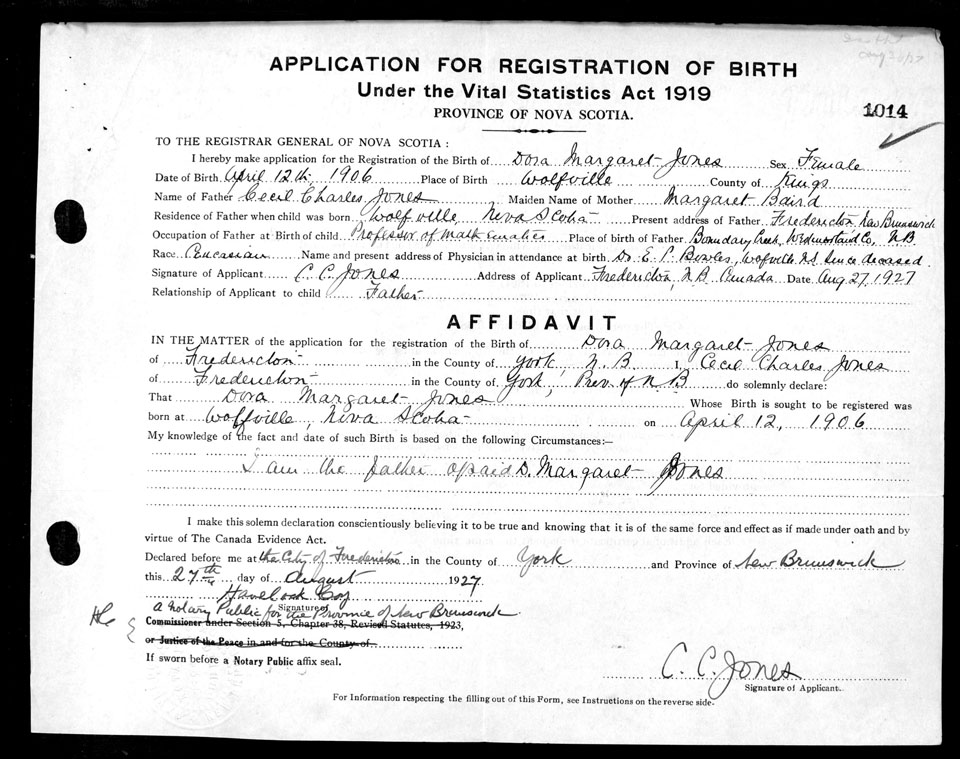 APPLICATION FOR REGISTRATION OF BIRTH
Under the Vital Statistics Act 1919
PROVINCE OF NOVA SCOTIA.
1014
TO THE REGISTRAR GENERAL OF NOVA SCOTIA :
I hereby make application for the Registration of the Birth of Dora Margaret Jones Sex Female
Date of Birth April 12th, 1906 Place of Birth Wolfville County of Kings
Name of Father Cecil Charles Jones Maiden Name of Mother Margaret Baird
Residence of Father when child was born Wolfville Nova Scotia Present address of Father Fredericton New Brunswick
Occupation of Father at Birth of child Professor of Mathematics Place of Birth of Father Boundary Creek, Westmorland Co, N B
Race Caucasian Name and present address of Physician in attendance at birth Dr. E. P. Bowles, Wolfville N.S. Since deceased.
Signature of Applicant C C Jones Address of Applicant Fredericton, N B Canada Date Aug 27, 1927
Relationship of Applicant to child Father
AFFIDAVIT
IN THE MATTER of the application for the registration of the Birth of Dora Margaret Jones
of Fredericton in the County of York, N. B I, Cecil Charles Jones
of Fredericton in the County of York, Prov. of N B do solemnly declare:
That Dora Margaret Jones Whose Birth is sought to be registered was
born at Wolfville, Nova Scotia on April 12, 1906
My knowledge of the fact and date of such Birth is based on the following Circumstances:—
I am the father of said D. Margaret Jones
I make this solemn declaration conscientiously believing it to be true and knowing that it is of the same force and effect as if made under oath and by
virtue of The Canada Evidence Act.
Declared before me at the City of Fredericton in the County of York and Province of New Brunswick
this 27th day of August 1927
Havelock Coy
Signature of
a Notary Public for the Province of New Brunswick
Commissioner under Section 5, Chapter 38, Revised Statutes, 1923,
or Justice of the Peace in and for the County of
If sworn before a Notary Public affix seal.
C. C. Jones
Signature of Applicant.
For Information respecting the filling out of this Form, see Instructions on the reverse side.